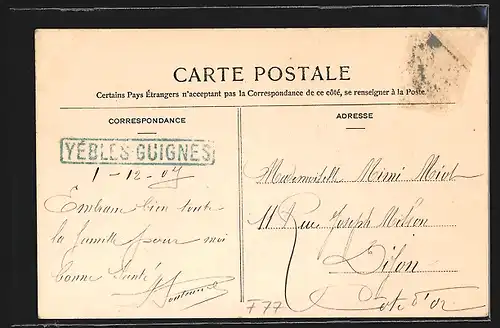 CARTE POSTALE
Certains Pays Étrangers n'acceptant pas la Correspondance de ce côté, se renseigner à la Poste
CORRESPONDANCE
YÉBLES-GUIGNES
1-12-07
Embrasse bien toute
la famille pour moi
bonne Santé
ADRESSE
Mademoiselle Mimi
11 Rue Joseph
Dijon
Cote d'or
F77